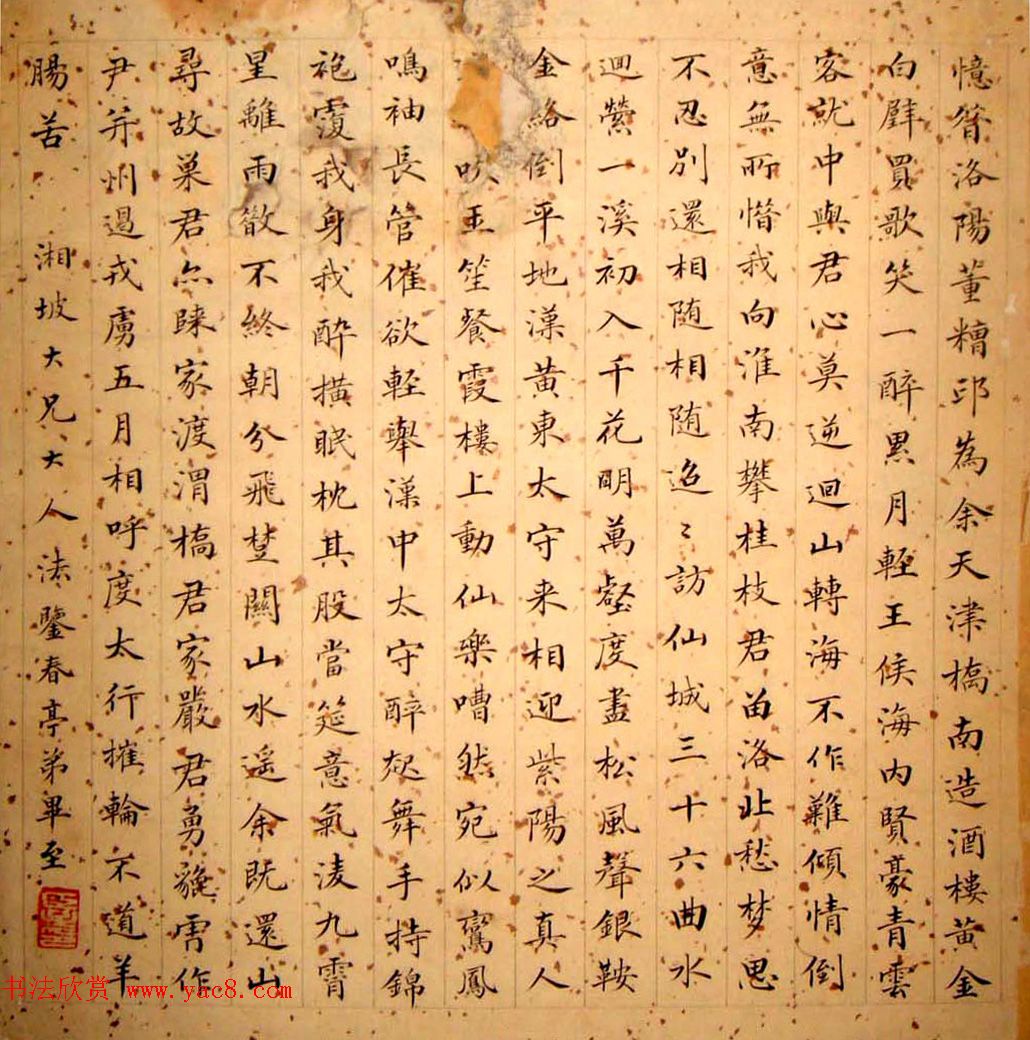 憶昝洛陽董糟邱為余天津橋南造酒樓黃金
白璧買歌笑一醉累月輕王侯海內賢豪青雲
客就中與君心莫逆迴山轉海不作難傾情倒
意無所惜我向淮南攀桂枝君留洛北愁梦思
不忍別還相随相随迢〻訪仙城三十六曲水
迴縈一溪初入千花明萬壑度盡松風聲銀鞍
金絡倒平地漢東太守来相迎紫陽之真人
吹玉笙餐霞樓上動仙樂嘈然宛似鸞鳳
鳴袖長管催欲輕舉漢中太守醉起舞手持錦
袍覆我身我醉橫眠枕其股當筵意氣凌九霄
星離雨散不終朝分飛楚關山水遥余既還山
尋故巢君亦歸家渡渭橋君家嚴君勇貔虎作
尹并州遏戎虜五月相呼度太行摧輪不道羊
腸苦 湘坡大兄大人法鑒春亭弟畢至
书法欣赏 www.yac8.com